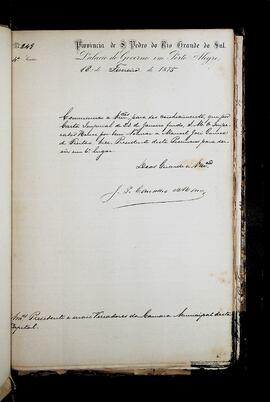 N. 249
Provincia de S. Pedro do Rio Grande do Sul.
Palacio do Governo em Porto Alegre,
10 de Fevereiro de 1875
Communico a para seu conhecimento, que por
Carta Imperial de de Janeiro findo, S. M. o Impe-
rador Houve por bem a Manoel José
de Freitas Vice-Presidente desta Provincia para
em 6º lugar.
Deos Guarde a
J. C.
Presidente e mais Vereadores da Camara Municipal desta
Capital.